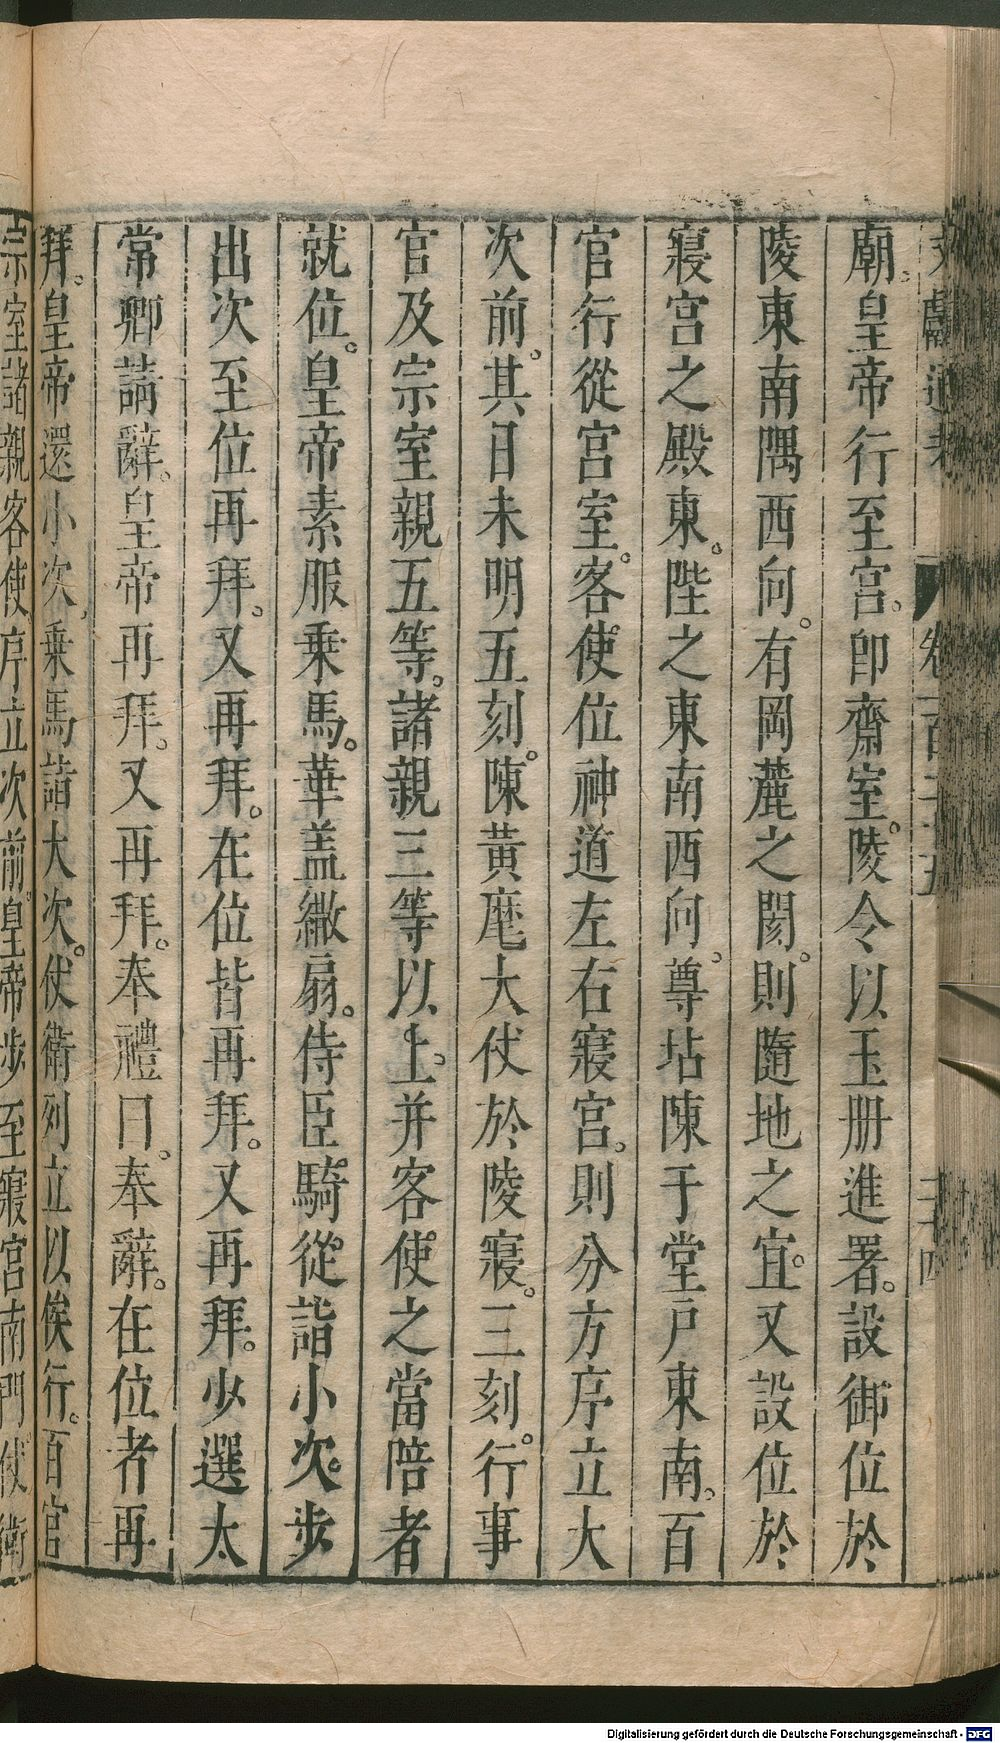 文獻通考 卷一百二十五 二十四
廟。皇帝行至宮。卽齋室。陵令以玉册進署。設御位於
陵東南隅西向。有岡麓之閡。則隨地之宜。又設位於
寢宮之殿東。陛之東南西向。尊坫陳于堂戶東南。百
官行從宮室。客使位神道左右寢宮。則分方序立大
次前。其日未明五刻。陳黃麾大仗於陵寢。三刻。行事
官及宗室親五等。諸親三等以上。并客使之當陪者
就位。皇帝素服乘馬。華盖繖扇。侍臣騎從。詣小次。步
出次至位再拜。又再拜。在位皆再拜。又再拜。少選太
常卿請辭。皇帝再拜。又再拜。奉禮曰。奉辭。在位者再
拜。皇帝還小次。乘馬詣大次。仗衛列立以俟行。百官
宗室諸親客使序立次前。皇帝步至寢宮南門。仗衛
Digitalisierung gefördert durch die Deutsche Forschungsgemeinschaft - DFG